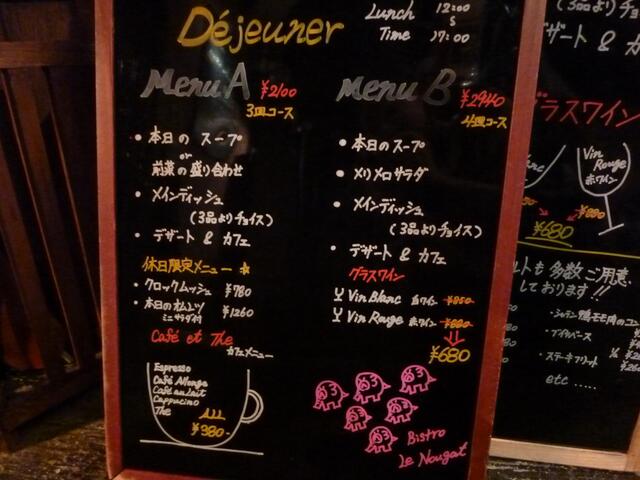 Déjeuner
Lunch Time 12:00 S 17:00
Menu A ¥2100
3皿コース
・本日の スープ
or
前菜の盛り合わせ
・メインディッシュ
(3品よりチョイス)
・デザート & カフェ
休日限定メニュー ☆
・クロックムッシュ ¥780
・本日のオムレツ ¥1260
ミニサラダ付
Café et The
カフェメニュー
Espresso
Café Allonge
Café au lait
Cappucino
The
All ¥380-
Menu B ¥2940
4皿コース
・本日のスープ
・メリメロサラダ
・メインディッシュ
(3品よりチョイス)
・デザート & カフェ
グラスワイン
Vin Blanc 白ワイン ¥850
Vin Rouge 赤ワイン ¥880
¥680
Bistro
Le Nougat
(3品よりチョイ
デザート & カ
グラスワイン
Vin Rouge
赤ワイン
¥680
ルトも 多数 ご用意
しております!!
・ステーキフリット
etc .....